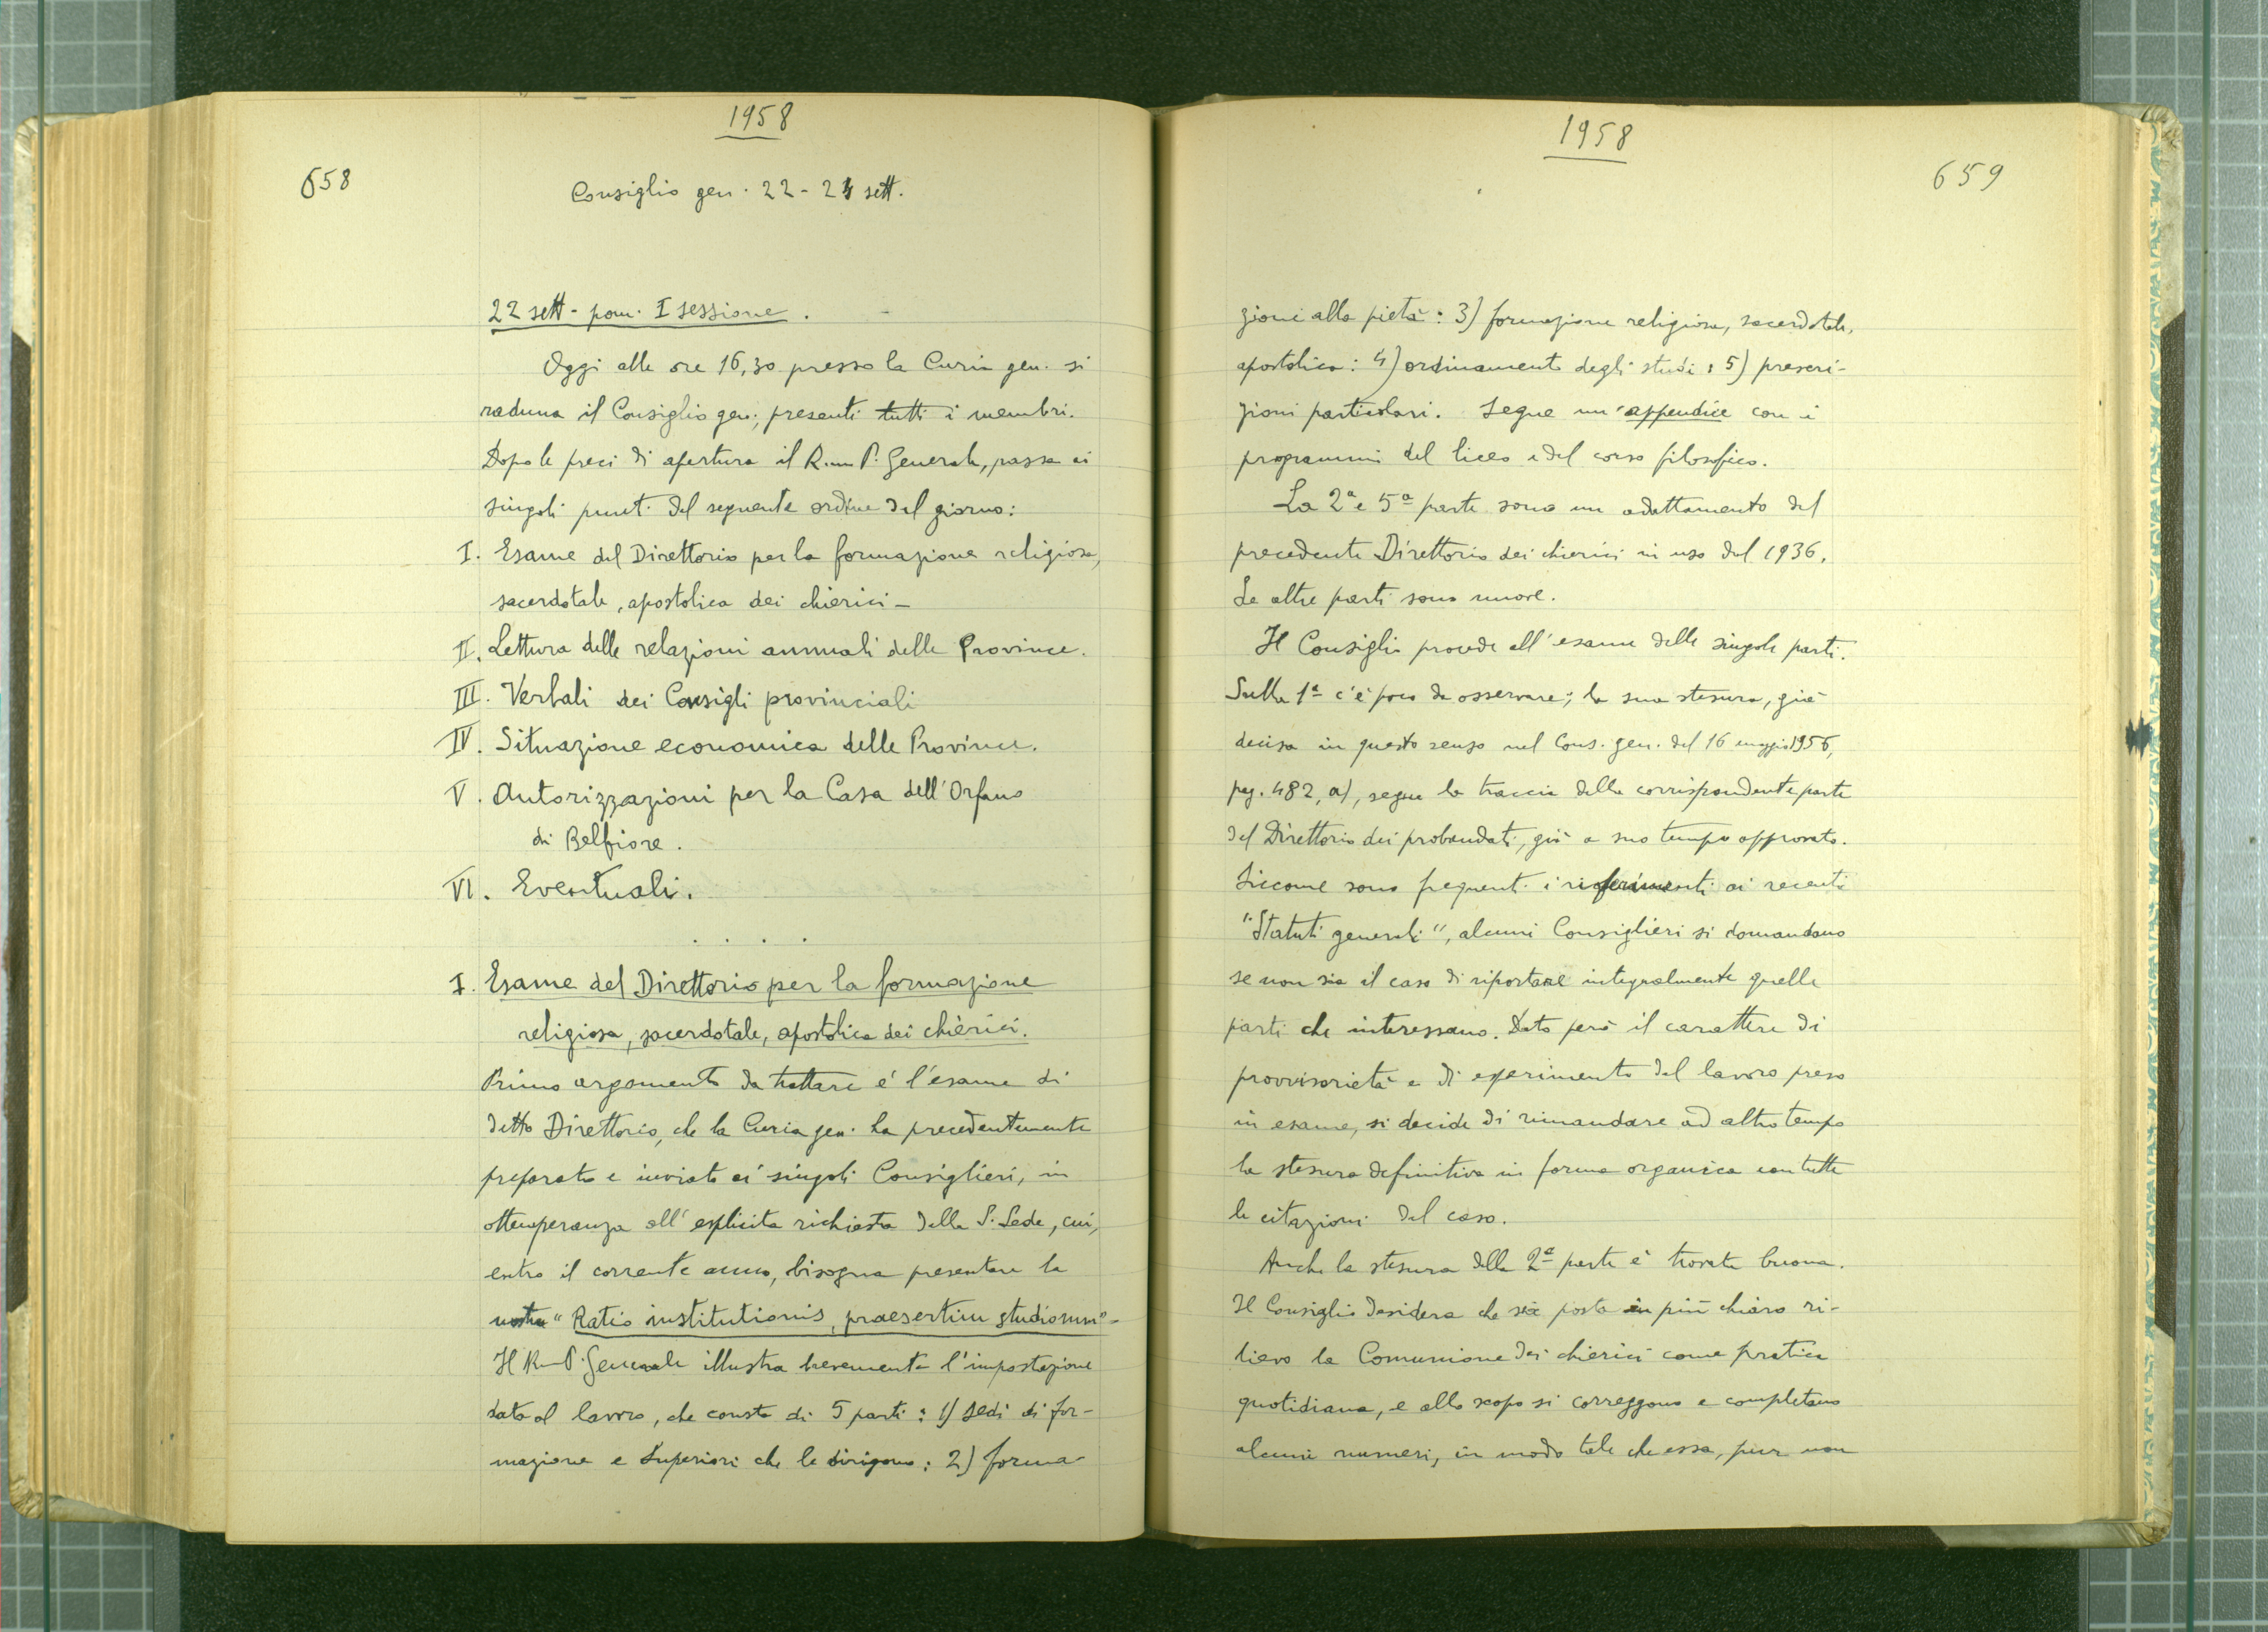 1958
658
Consiglio gen. 22-24 sett.
22 sett - pom. I sessione.
Oggi alle ore 16,30 presso la Curia gen. si
raduna il Consiglio gen., presenti tutti i membri.
Dopo le preci di apertura il R.mo P. Generale, passa ai
singoli punti del seguente ordine del giorno:
I. Esame del Direttorio per la formazione religiosa,
sacerdotale, apostolica dei chierici -
II. Lettura delle relazioni annuali delle Province.
III. Verbali dei Consigli provinciali
IV. Situazione economica delle Province.
V. Autorizzazioni per la Casa dell'Orfano
di Belfiore.
VI. Eventuali.
. . . .
I. Esame del Direttorio per la formazione
religiosa, sacerdotale, apostolica dei chierici.
Primo argomento da trattare é l'esame di
detto Direttorio, che la Curia gen. ha precedentemente
preparato e inviato ai singoli Consiglieri, in
ottemperanza all'esplicita richiesta della S. Sede, cui,
entro il corrente anno, bisogna presentare la
nostra "Ratio institutionis, praesertim studiorum"-
Il R.mo P. Generale illustra brevemente l'impostazione
data al lavoro, che consta di 5 parti: 1) Sedi di for-
mazione e Superiori che le dirigono: 2) forma-
1958
659
zioni alla pietà: 3) formazione religiosa, sacerdotale,
apostolica: 4) ordinamento degli studi: 5) prescri-
zioni particolari. Segue un'appendice con i
programmi del liceo e del corso filosofico.
La 2ª e 5ª parte sono un adattamento del
precedente Direttorio dei chierici in uso dal 1936.
Le altre parti sono nuove.
Il Consiglio procede all'esame delle singole parti.
Sulla 1ª c'è poco da osservare; la sua stesura, già
decisa in questo senso nel Cons. gen. del 16 maggio 1956,
pag. 482, a), segue la traccia della corrispondente parte
del Direttorio dei probandati, già a suo tempo approvato.
Siccome sono frequenti i riferimenti ai recenti
"Statuti generali", alcuni Consiglieri si domandano
se non sia il caso di riportare integralmente quelle
parti che interessano. Dato però il carattere di
provvisorietà e di esperimento del lavoro preso
in esame, si decide di rimandare ad altro tempo
la stesura definitiva in forma organica con tutte
le citazioni del caso.
Anche la stesura della 2ª parte è trovata buona.
Il Consiglio desidera che sia posta in più chiaro ri-
lievo la Comunione dei chierici come pratica
quotidiana, e allo scopo si correggono e completano
alcuni numeri, in modo tale che essa, pur non